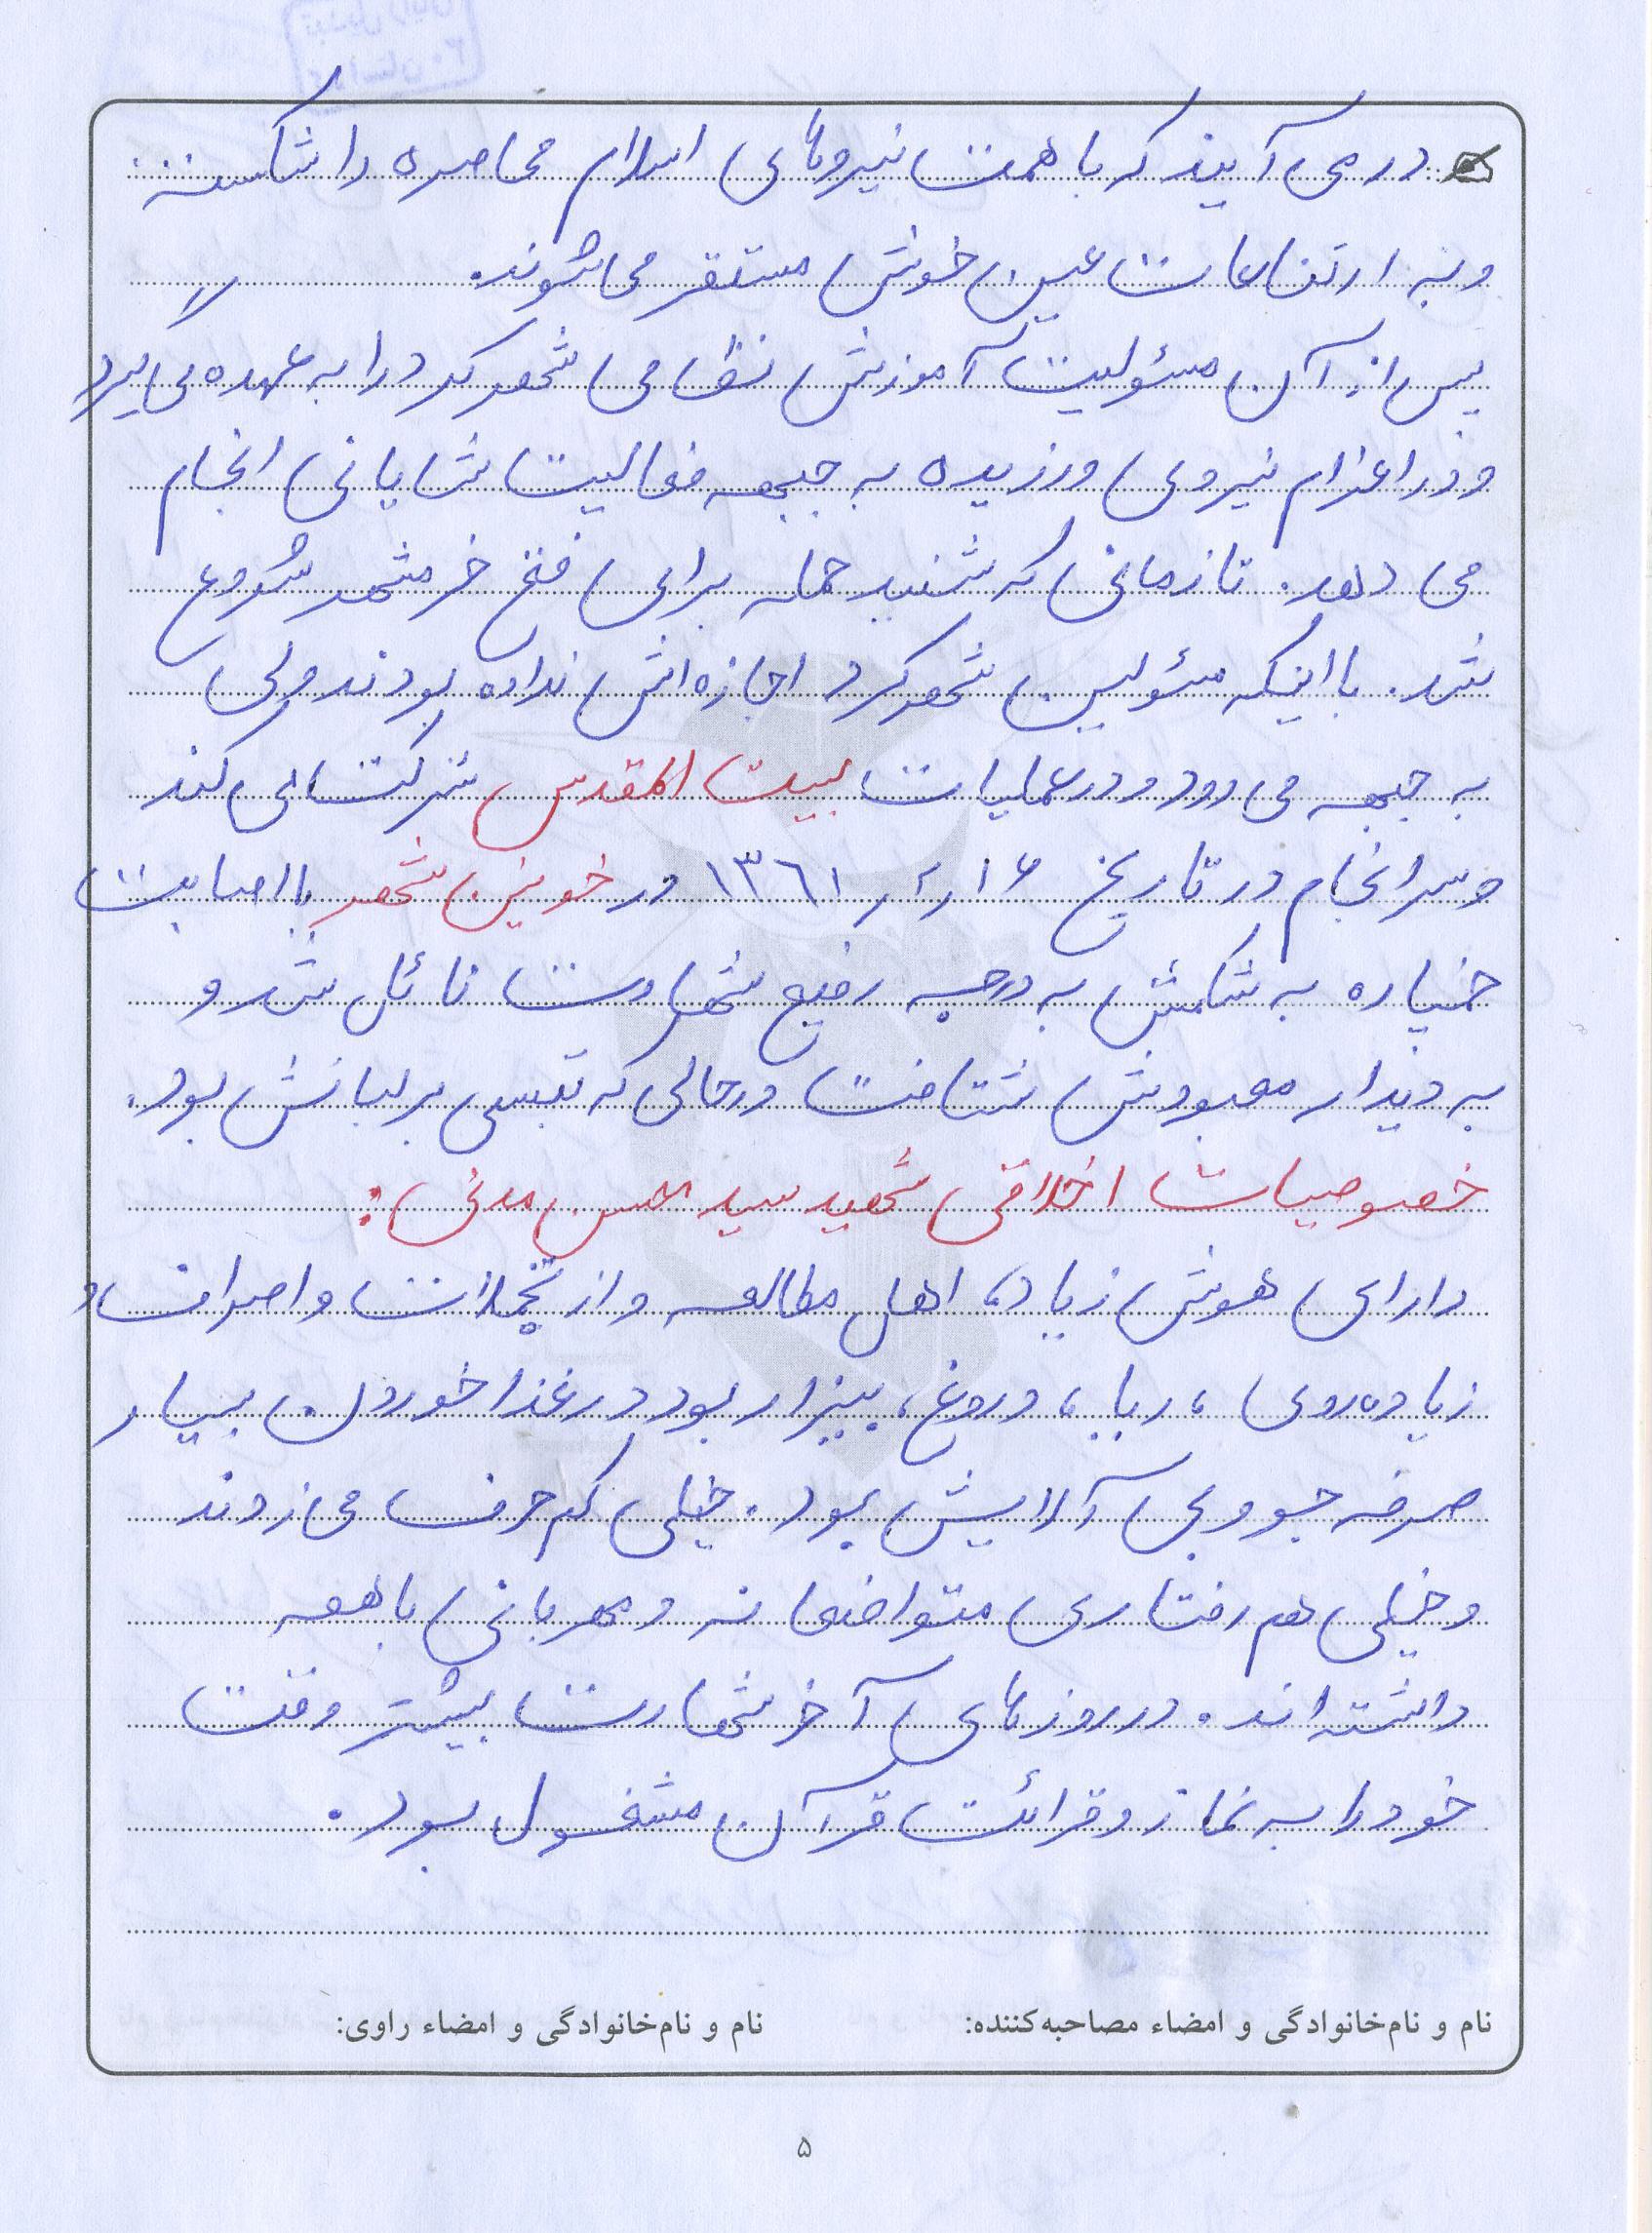 در می آیند که با همت نیروهای اسلام محاصره را شکسته
و به ارتفاعات عین خوش مستقر می شوند.
پس از آن مسئولیت آموزش نظامی شهرکرد را به عهده می گیرد
و در اعزام نیروی ورزیده به جبهه فعالیت شایانی انجام
می دهد. تا زمانی که شنید حمله برای فتح خرمشهر شروع
شد. با اینکه مسئولین شهرکرد اجازه اش نداده بودند ولی
به جبهه می رود و در عملیات بیت المقدس شرکت می کند
و سرانجام در تاریخ ۱۳۶۱/۲/۱۶ در خونین شهر با اصابت
خمپاره به شکمش به درجه رفیع شهادت نائل شد و
به دیدار معبودش شتافت در حالی که تبسمی بر لبانش بود.
خصوصیات اخلاقی شهید سید مدنی:
دارای هوش زیاد، اهل مطالعه و از تجملات و اصراف و
زیاده روی، ریا، دروغ، بیزار بود در غذا خوردن بسیار
صرفه جو و بی آلایش بود. خیلی کم حرف می زدند
و خیلی هم رفتاری متواضعانه و مهربانی با همه
داشته اند. در روزهای آخر شهادت بیشتر وقت
خود را به نماز و قرائت قرآن مشغول بود.
نام و نام‌خانوادگی و امضاء مصاحبه‌کننده: نام و نام‌خانوادگی و امضاء راوی:
۵